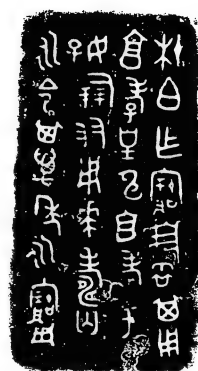 杜白乍寶盨其用
享孝于皇申且考于
好倗友用𠦪壽匄
永令其萬年永寶用